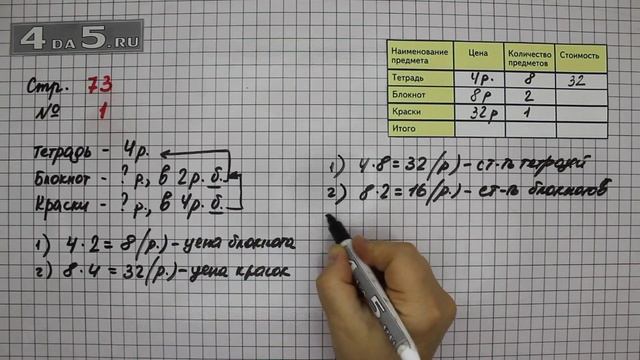 4DA5.RU
Стр. 73
№ 1
Тетрадь - 4р.
Блокнот - ? р., в 2р. б.
Краски - ? р., в 4р. б.
1) 4·2=8(р.)-цена блокнота
2) 8·4=32(р.)-цена красок
Наименование предмета Цена Количество предметов Стоимость
Тетрадь 4р. 8 32
Блокнот 8р 2
Краски 32р 1
Итого
1) 4·8=32(р)-ст-ть тетрадей
2) 8·2=16(р.)-ст-ть блокнотов